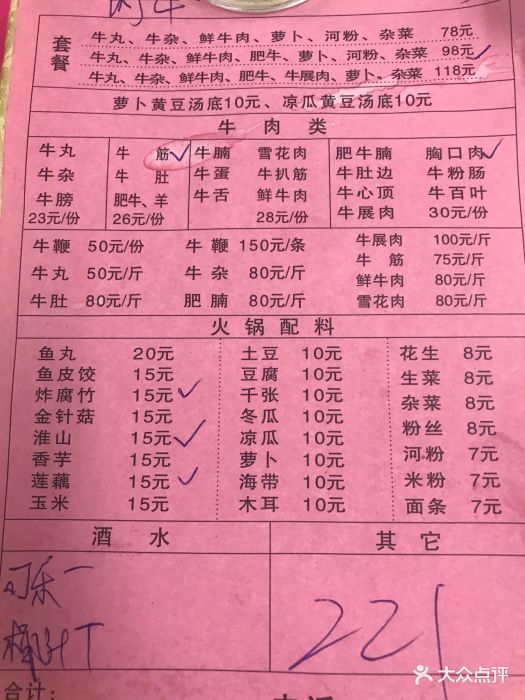 套餐
牛丸、牛杂、鲜牛肉、肥牛、萝卜、河粉、杂菜 78元
牛丸、牛杂、鲜牛肉、肥牛、萝卜、河粉、杂菜 98元
牛丸、牛杂、鲜牛肉、肥牛、牛展肉、萝卜、杂菜 118元
萝卜黄豆汤底10元、凉瓜黄豆汤底10元
牛肉类
牛丸 牛筋 牛腩 雪花肉 肥牛腩 胸口肉
牛杂 牛肚 牛蛋 牛扒筋 牛肚边 牛粉肠
牛膀 肥牛、羊 牛舌 鲜牛肉 牛心顶 牛百叶
23元/份 26元/份 28元/份 牛展肉 30元/份
牛鞭 50元/份 牛鞭 150元/条 牛展肉 100元/斤
牛丸 50元/斤 牛杂 80元/斤 牛筋 75元/斤
牛肚 80元/斤 肥腩 80元/斤 鲜牛肉 80元/斤
雪花肉 80元/斤
火锅配料
鱼丸 20元 土豆 10元 花生 8元
鱼皮饺 15元 豆腐 10元 生菜 8元
炸腐竹 15元 千张 10元 杂菜 8元
金针菇 15元 冬瓜 10元 粉丝 8元
淮山 15元 凉瓜 10元 河粉 7元
香芋 15元 萝卜 10元 米粉 7元
莲藕 15元 海带 10元 面条 7元
玉米 15元 木耳 10元
酒水 其它
可乐一
椰汁T
221
合计:
大众点评